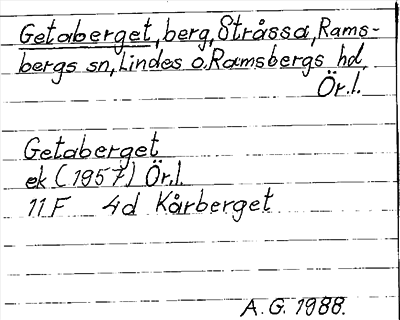 Getaberget, berg, Stråssa, Rams-
bergs sn, Lindes o. Ramsbergs hd,
Ör.l.
Getaberget
ek (1957) Ör.l.
11F 4d Kårberget
A.G. 1988.